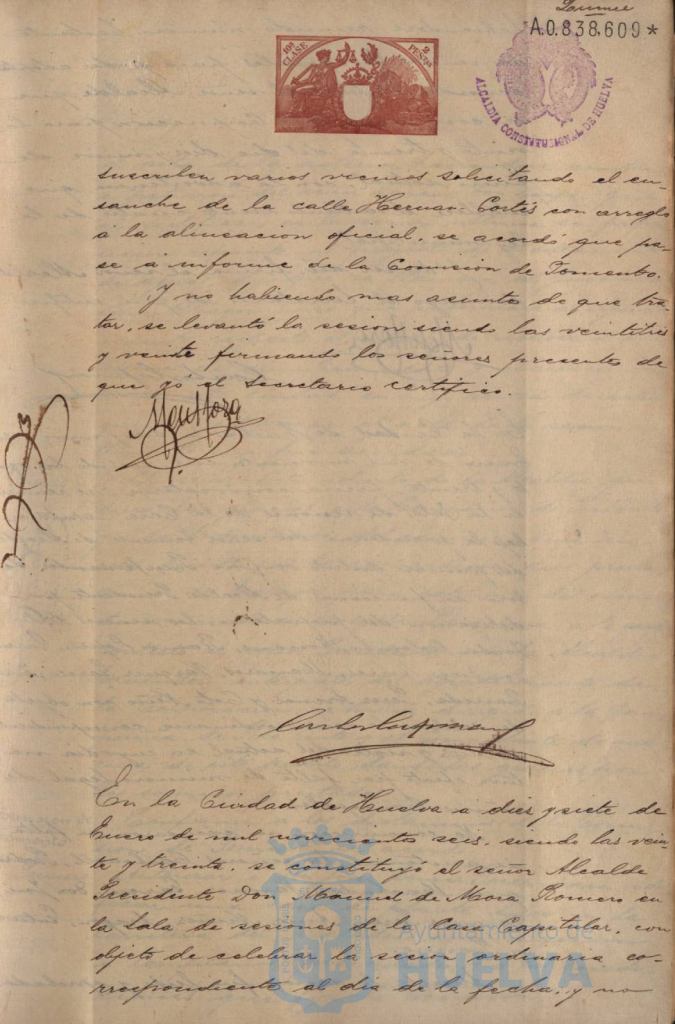 A.0.838.609*
10ª CLASE
2 PESETAS
ALCALDIA CONSTITUCIONAL DE HUELVA
suscriben varios vecinos solicitando el en-
sanche de la calle Hernan Cortés con arreglo
á la alineacion oficial, se acordó que pa-
se á informe de la Comision de Fomento.
Y no habiendo mas asunto de que tra-
tar, se levantó la sesion siendo las veintitres
y veinte firmando los señores presentes de
que yó el Secretario certifico.
En la Ciudad de Huelva a diez y siete de
Enero de mil novecientos seis, siendo las vein-
te y treinta, se constituyó el señor Alcalde
Presidente Don Manuel de Mora Romero en
la Sala de sesiones de la Casa Capitular, con
objeto de celebrar la sesion ordinaria co-
rrespondiente al dia de la fecha, y no
Ayuntamiento de
HUELVA